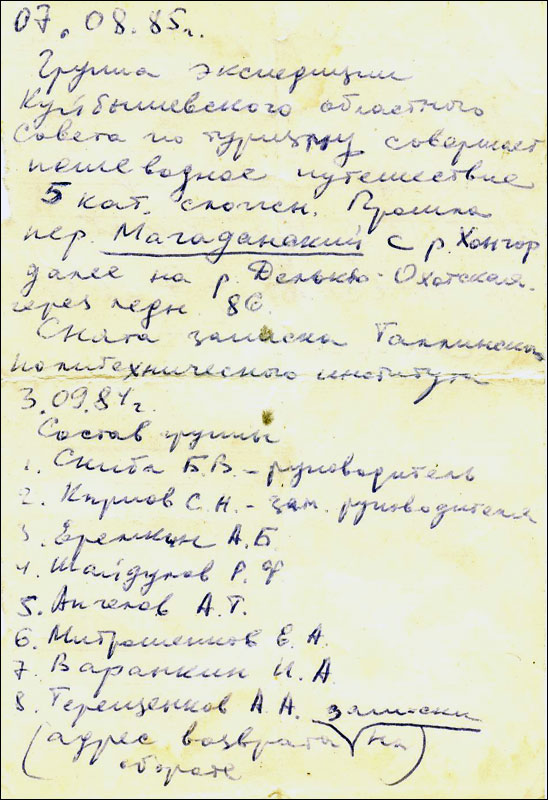 07.08.85г.
Группа экспедиции
Куйбышевского областного
Совета по туризму совершает
пешеводное путешествие
5 кат. сложн. Прошла
пер. Магаданский с р. Хонгор
далее на р. Делькю-Охотская.
через ледн. 86.
Снята записка Таллинского
политехнического института
3.09.84г.
Состав группы
1. Скиба Б.В. – руководитель
2. Кирпов С.Н. – зам. руководителя
3. Еремкин А.Б.
4. Шайдулов Р.Ф.
5. Ангелов А.Т.
6. Митрошенков Е.А.
7. Варанкин И.А.
8. Терещенков А.А. записки
(адрес возврата на
обороте)